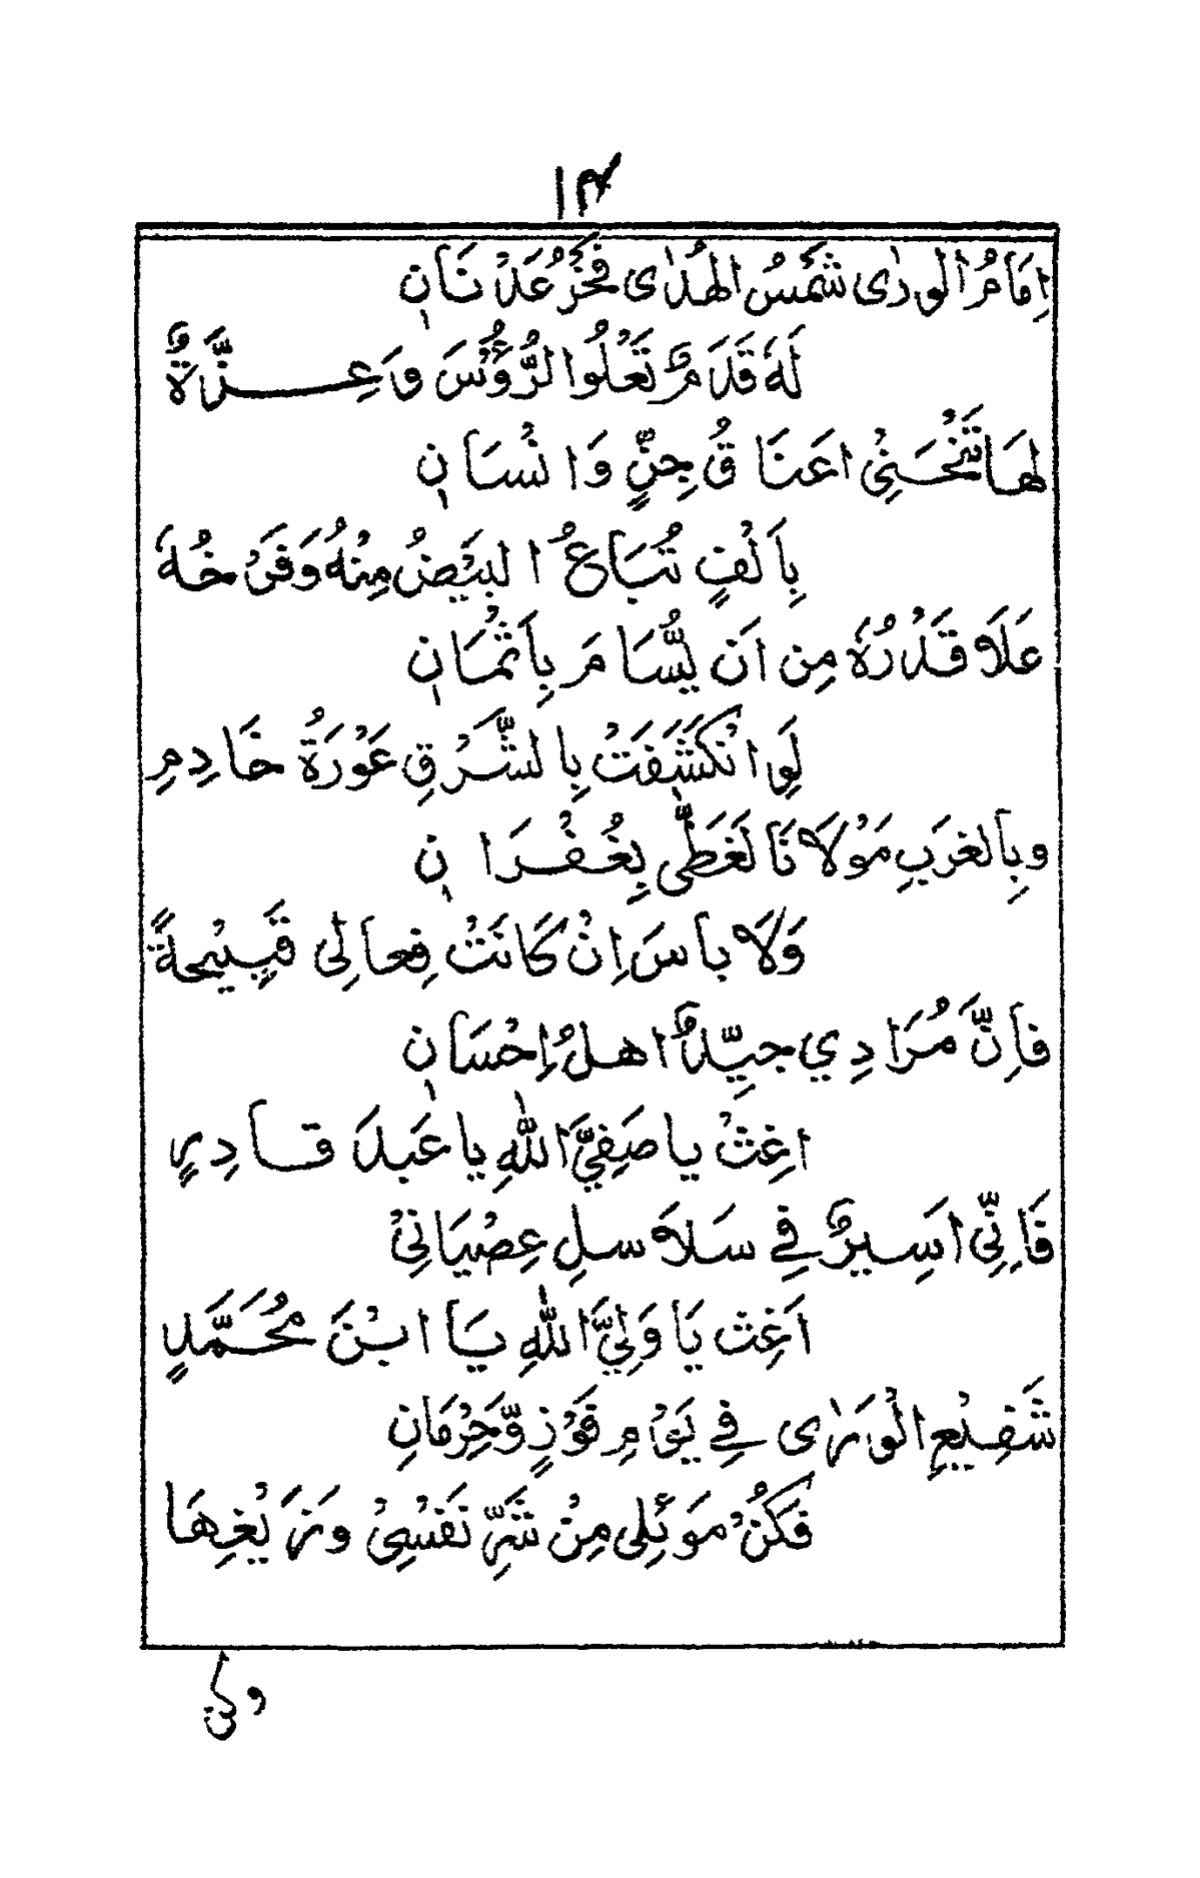 ۱۴
اِمَامُ الوَرٰى شَمْسُ الهُدٰى فَخْرُ عَدْنَانٖ
لَهٗ قَدَمٌ تَعْلُوا لرُّؤُسَ وَعِزَّةٌ
لهَا تَنْحَنِىْ اعَنَاقُ جِنٍّ وَانْسَانٖ
بِاَلْفٍ تُبَاعُ البَيْضُ مِنْهُ وَفَرْخُهٗ
عَلَا قَدْرُهٗ مِن اَن يُّسَامَ بِاَثْمَانٖ
لَوِ انْكَشَفَتْ بِالشَّرْقِ عَوْرَةُ خَادِمِ
وبِالغرَبِ مَوْلَانَا لَغَطّٰى بِغُفْرَانٖ
وَلَا باسَ اِنْ كَانَتْ فِعالِىْ قَبِيْحةً
فاِنَّ مُرَادِي جيِّدٌ اهلُ اِحْسَانٖ
اغِثْ يا صَفِيَّ اللّٰهِ يا عَبدَ قادِرٍ
فَاِنِّىْ اَسِيرٌ فِے سَلَاسلِ عِصْيَانِىْ
اَغِث يَا وَلِيَّ اللّٰهِ يَا ابْنَ مُحَمَّدٍ
شَفِيْعِ الْوَرٰى فِے يَوْمِ فَوْزٍ وَّحِرْمَانِ
فَكُنْ مَوئِلِى مِنْ شَرِّ نَفْسِىْ وَزَيْغِهَا